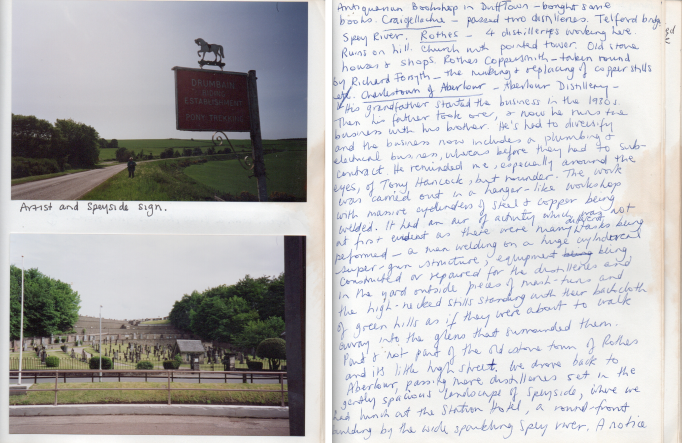 DRUMBAIN
RIDING
ESTABLISHMENT
PONY TREKKING
Artist and Speyside sign.
Antiquarian Bookshop in Dufftown - bought some
books. Craigellachie - passed two distilleries. Telford bridge
Spey River. Rothes - 4 distilleries working here.
Ruins on hill. Church with pointed tower. Old stone
houses & shops. Rothes Coppersmith - taken round
by Richard Forsyth - the making & replacing of copper stills
etc. Charlestown of Aberlour - Aberlour Distillery -
His grandfather started the business in the 1930s.
Then his father took over, & now he runs the
business with his brother. He's had to diversify
and the business now includes a plumbing &
electrical business, whereas before they had to sub-
contract. He reminded me, especially around the
eyes, of Tony Hancock, but rounder. The work
was carried out in a hanger-like workshop
with massive cylinders of steel & copper being
welded. It had an air of activity which was not
at first evident as there were many different tasks being
performed - a man welding on a huge cylindrical
super-gun structure, equipment being
constructed or repaired for the distilleries and
in the yard outside pieces of mash-tuns and
the high-necked stills standing with their backcloth
of green hills as if they were about to walk
away into the glens that surrounded them.
Part & not part of the old stone town of Rothes
and its little high street. We drove back to
Aberlour, passing more distilleries set in the
gently spacious landscape of Speyside, where we
had lunch at the Station Hotel, a round-front
building by the wide sparkling Spey river. A notice